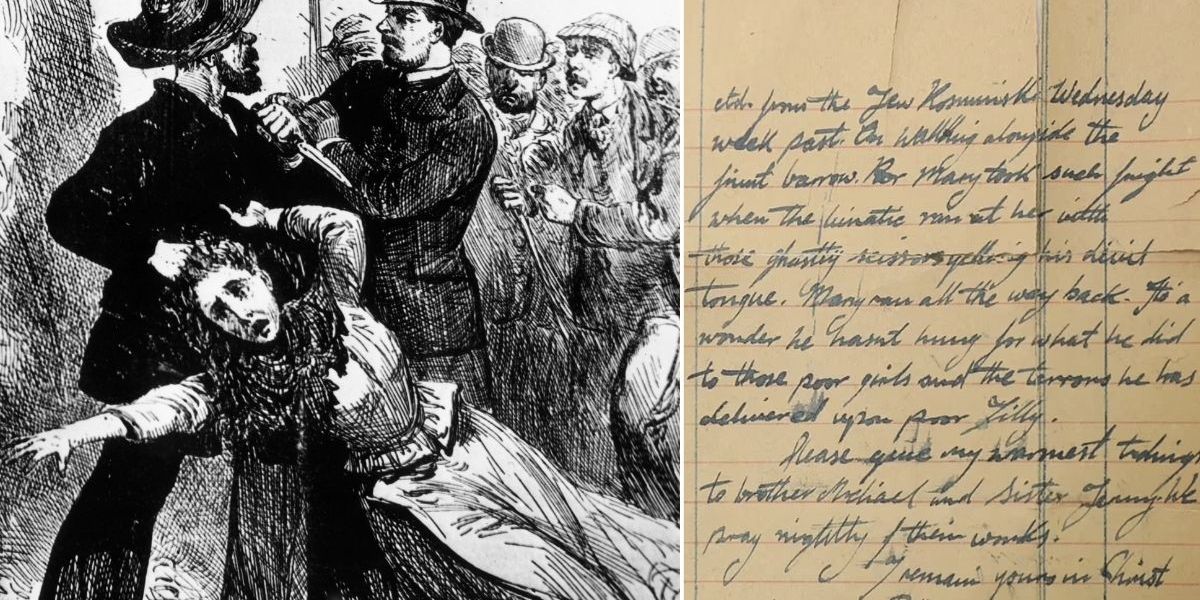 from the Jew Kosminski Wednesday
week past. On walking alongside the
fruit barrow. Poor Mary took such fright
when the lunatic ran at her with
those ghastly scissors yelling his devil
tongue. Mary ran all the way back. It's a
wonder he hasnt hung for what he did
to those poor girls and the terrors he has
delivered upon poor Tilly.
Please give my warmest tidings
to brother Michael and Sister Jenny. We
pray nightly f their works.
I remain yours in Christ